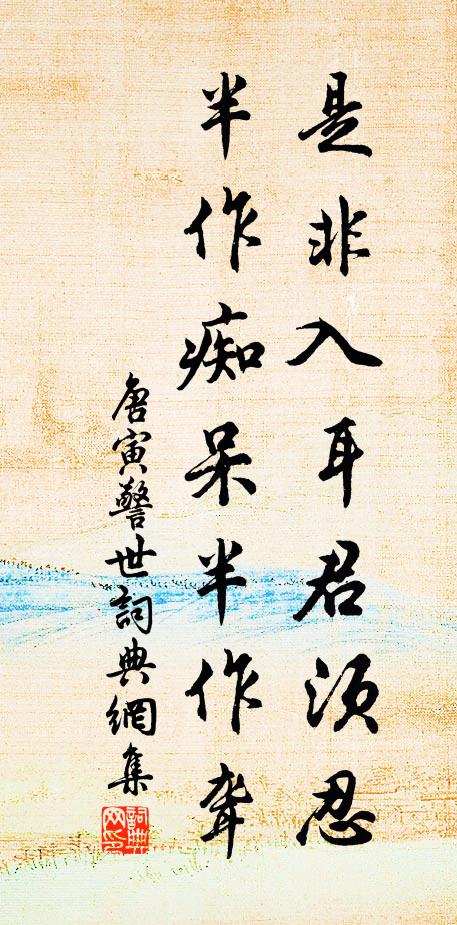 是非入耳君須忍
半作痴呆半作聾
唐寅警世詞典網集
詞典网印